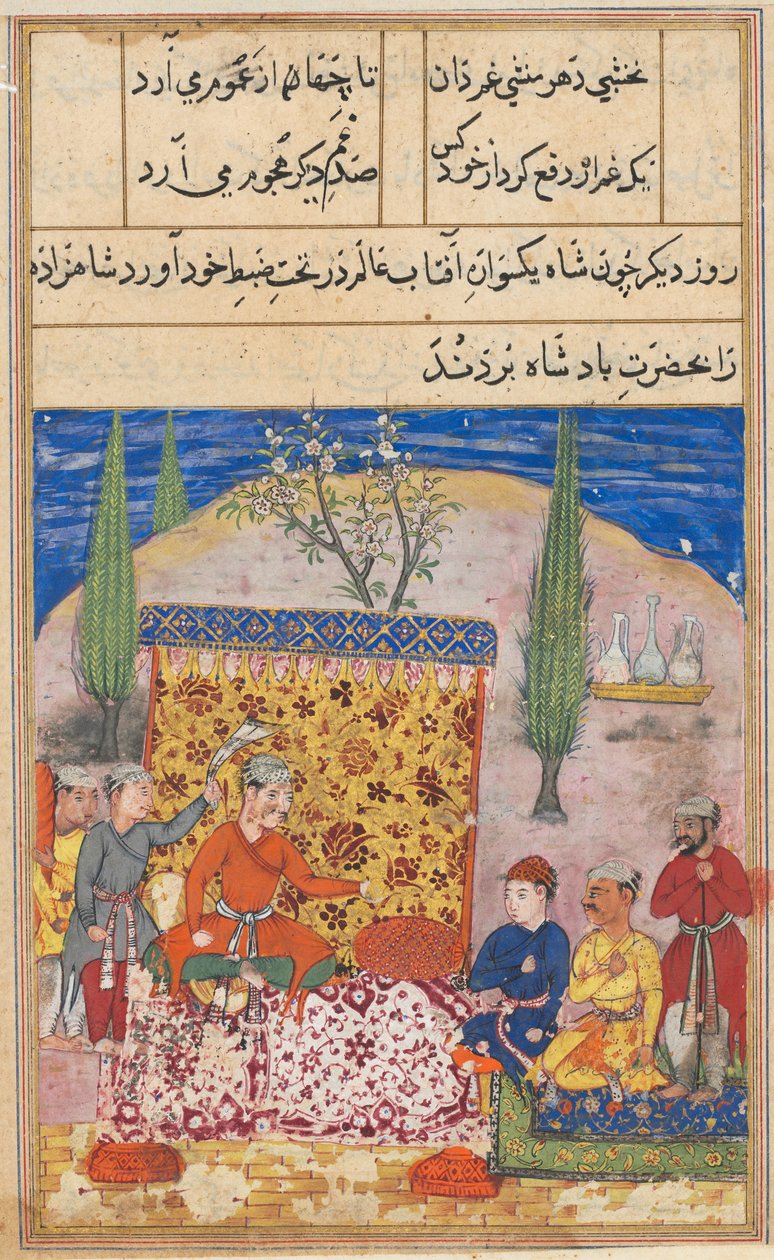 نخشبی دهر منشی غم دان تا چها از عموم می آرد
یک غم از دفع کرد از خود کس صد غم دیکر هجوم می آرد
روز دیکر چون شاه یکسواره آفتاب عالم در تحت ضبط خود آورد شاهزاده
را بحضرت بادشاه بردند